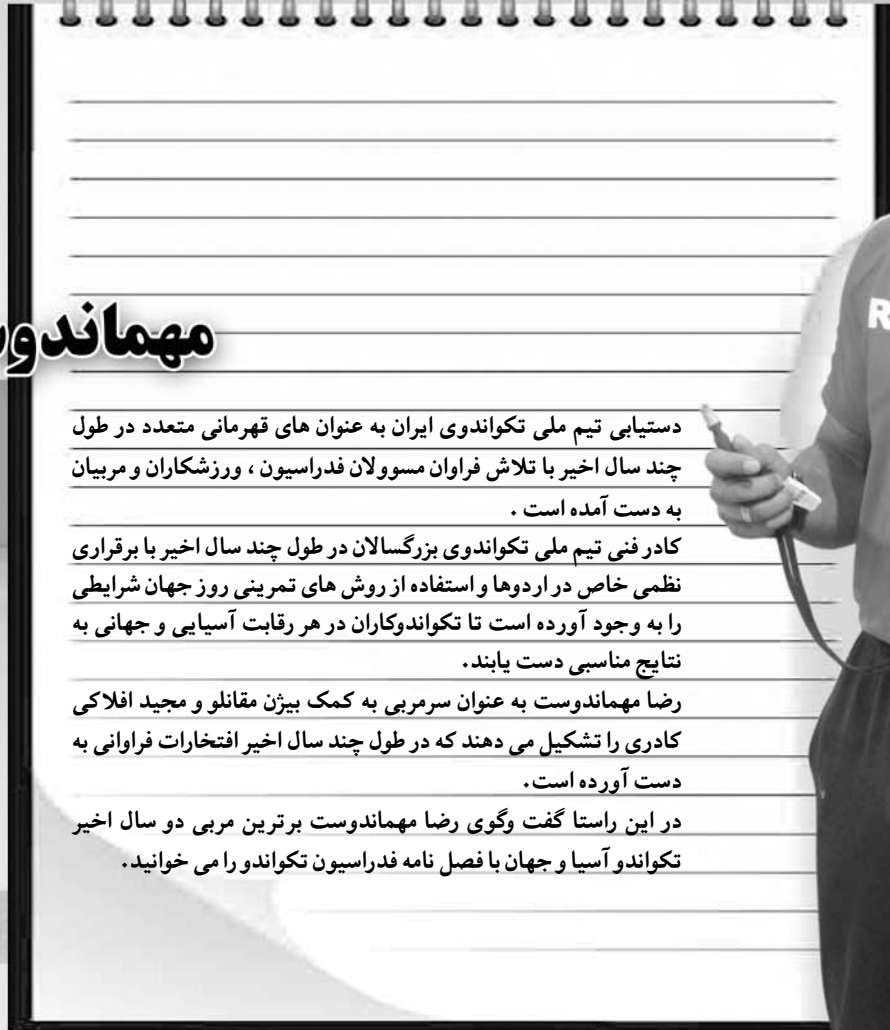 دستیابی تیم ملی تکواندوی ایران به عنوان های قهرمانی متعدد در طول
چند سال اخیر با تلاش فراوان مسوولان فدراسیون ، ورزشکاران و مربیان
به دست آمده است .
کادر فنی تیم ملی تکواندوی بزرگسالان در طول چند سال اخیر با برقراری
نظمی خاص در اردوها و استفاده از روش های تمرینی روز جهان شرایطی
را به وجود آورده است تا تکواندوکاران در هر رقابت آسیایی و جهانی به
نتایج مناسبی دست یابند.
رضا مهماندوست به عنوان سرمربی به کمک بیژن مقانلو و مجید افلاکی
کادری را تشکیل می دهند که در طول چند سال اخیر افتخارات فراوانی به
دست آورده است.
در این راستا گفت وگوی رضا مهماندوست برترین مربی دو سال اخیر
تکواندو آسیا و جهان با فصل نامه فدراسیون تکواندو را می خوانید.